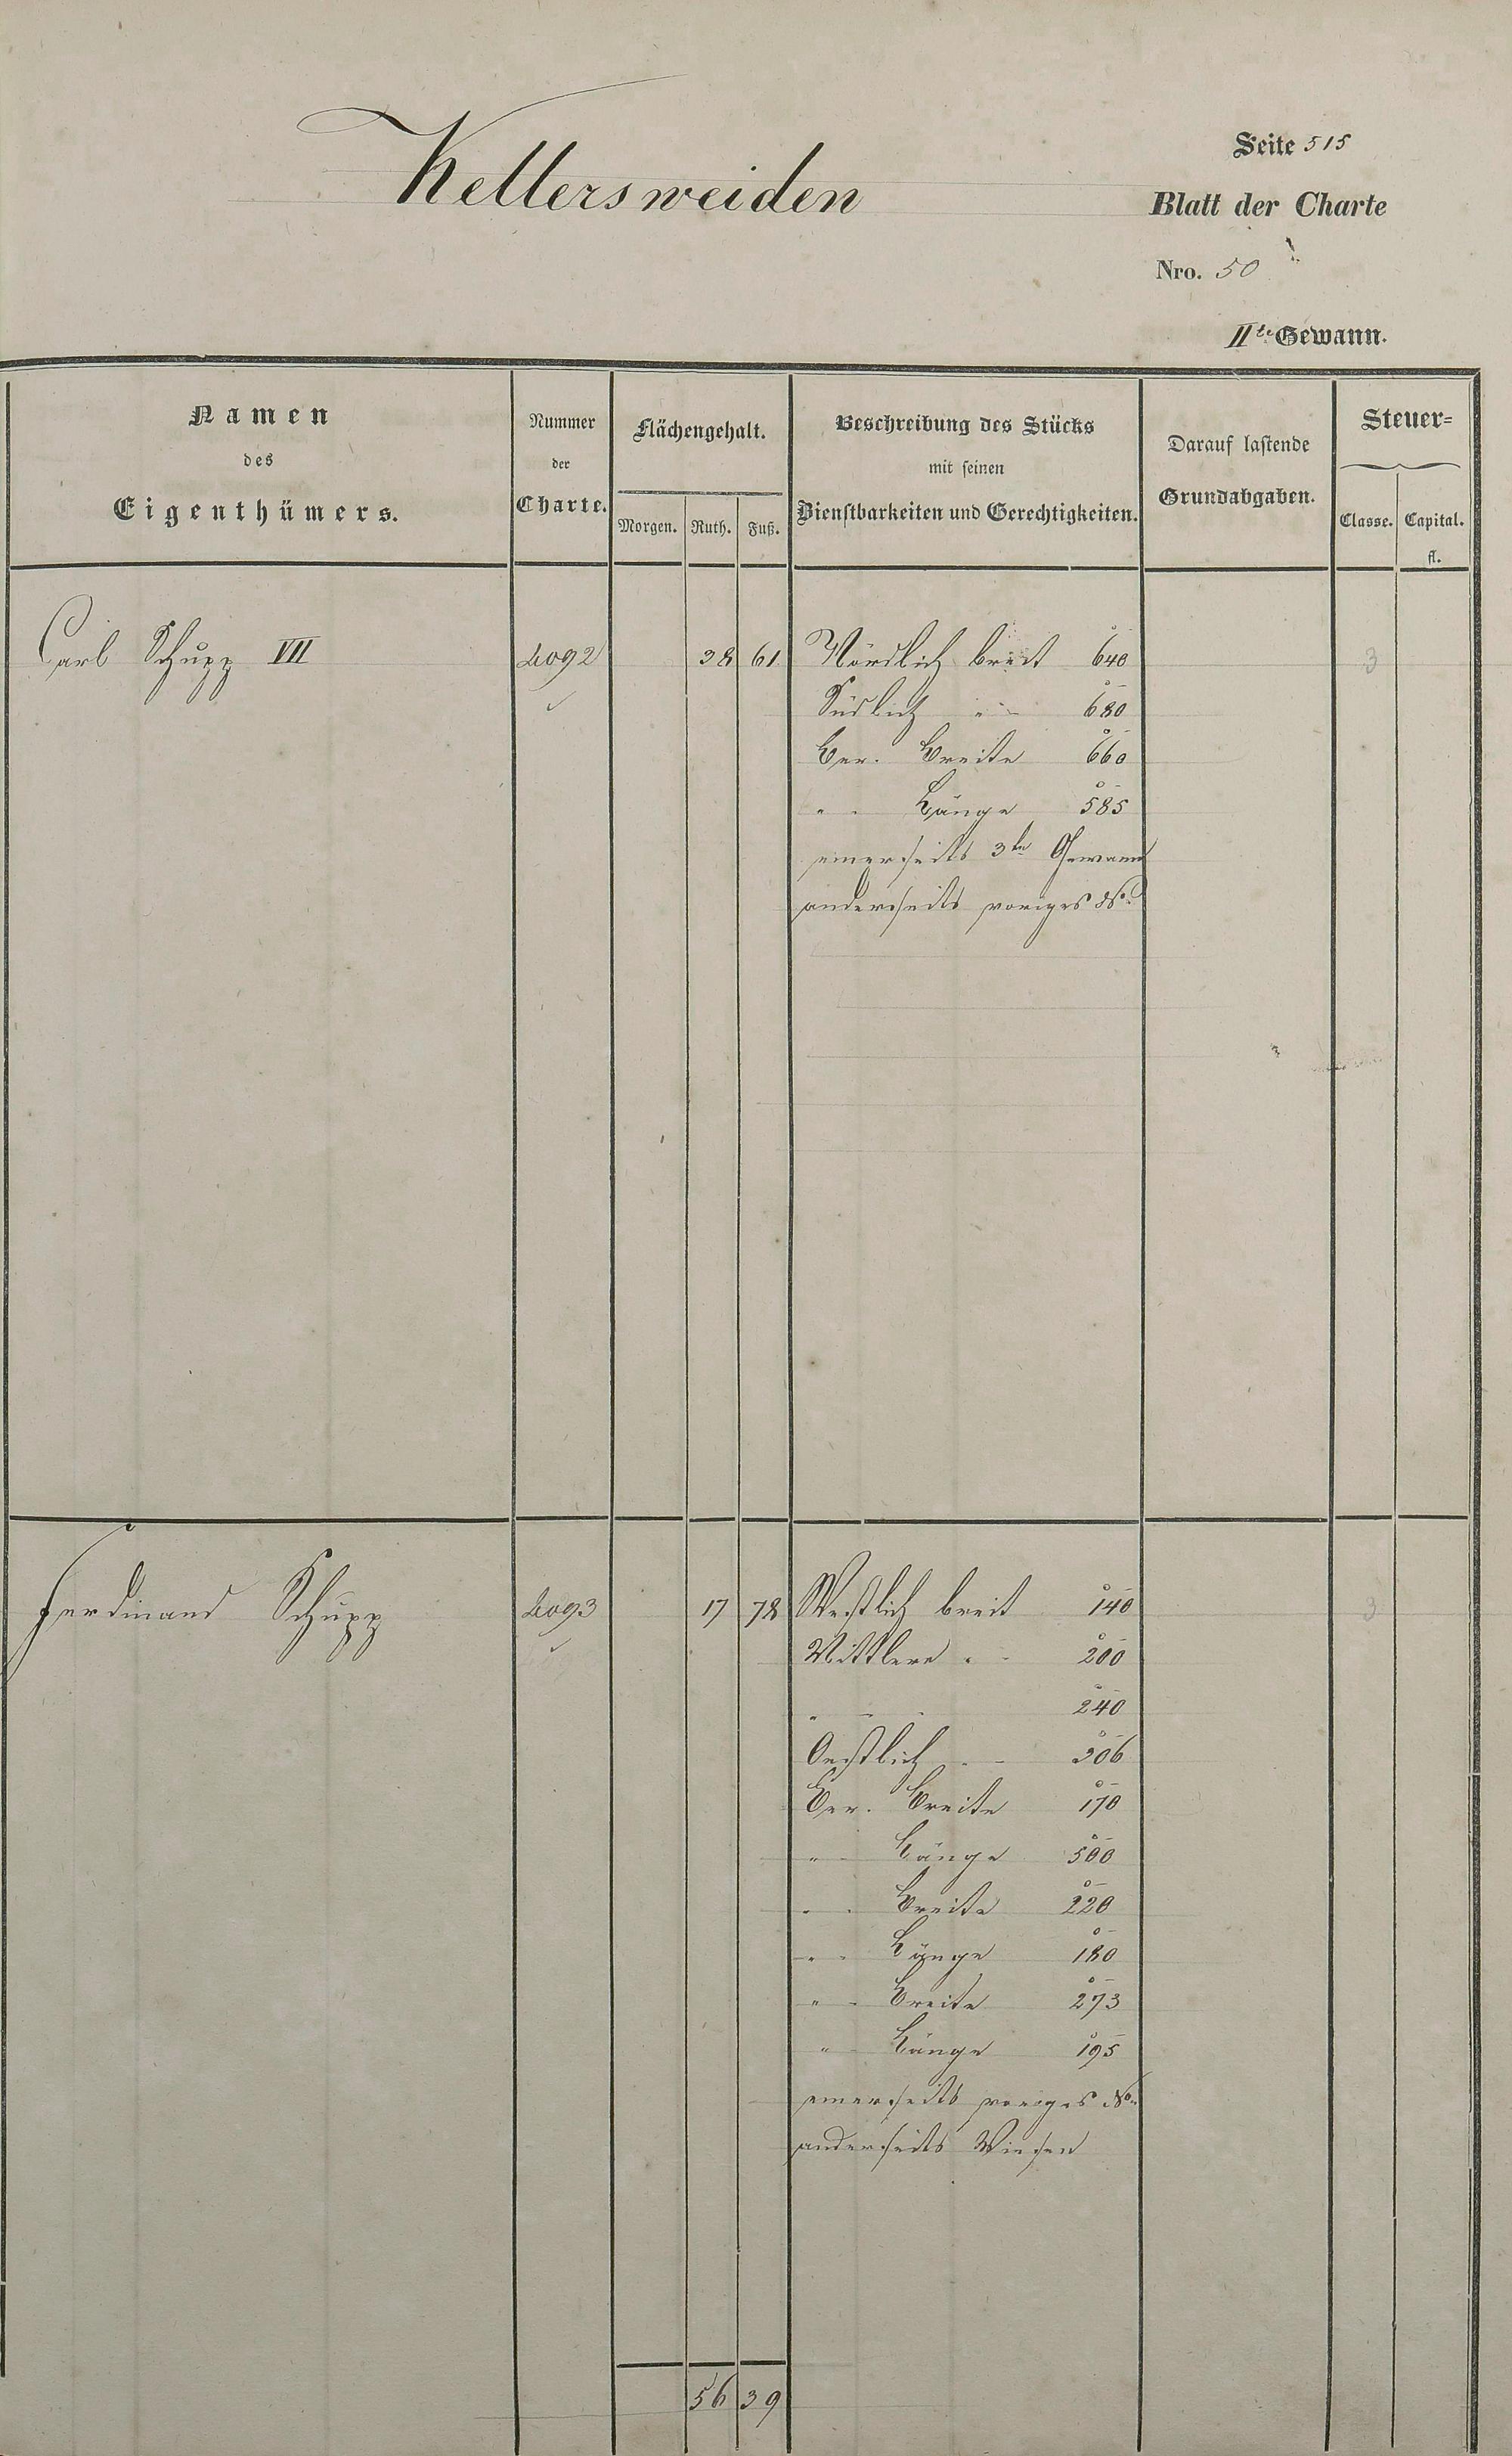 Kellersweiden
Seite 515
Blatt der Charte
Nro. 50
IIte Gewann.
Namen
des
Eigenthümers.
Nummer
der
Charte.
Flächengehalt.
Morgen. Ruth. Fuß.
Beschreibung des Stücks
mit seinen
Dienstbarkeiten und Gerechtigkeiten.
Darauf lastende
Grundabgaben.
Steuer=
Classe. Capital.
fl.
Carl Schupp VII 4092 38 61 Nördlich breit 640 3
Südlich " 680
Ber. Breite 660
" " Länge 585
einerseits 3te Gewann
anderseits voriges No.
Ferdinand Schupp 4093 17 78 Westlich breit 140 3
Mittlere " 200
" " 240
Oestlich " 306
Ber. Breite 170
" Länge 500
" " Breite 220
" " Länge 180
" " Breite 273
" Länge 195
einerseits voriges No.
anderseits Wiesen
56 39